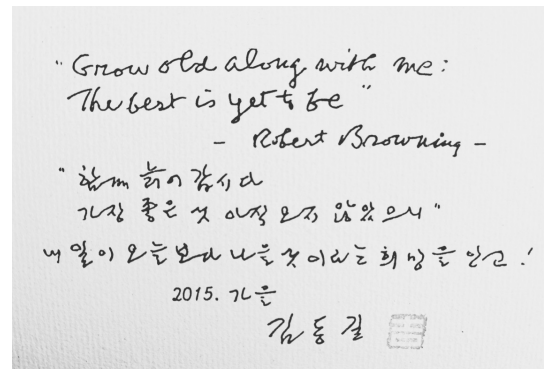 "Grow old along with me:
The best is yet to be"
- Robert Browning -
"함께 늙어 갑시다
가장 좋은 것 아직 오지 않았으니"
내일이 오늘보다 나을 것이라는 희망을 안고!
2015. 가을
김동길